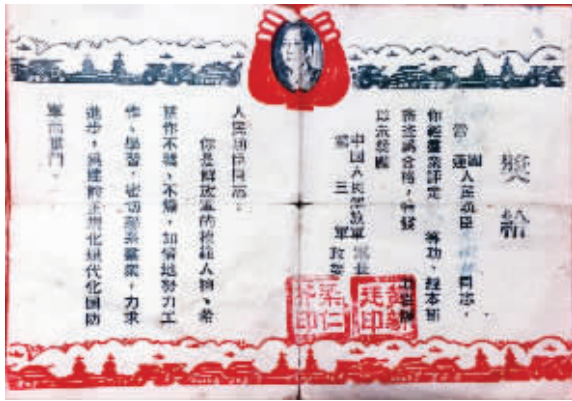 獎給
團
營 連人民功臣 同志,
你經羣衆評定 等功,經本部
審查認合格,特發
中國人民解放軍 軍長
第三軍 政委
人民功臣同志:
你是解放軍的模範人物,希
望你不驕、不燥,加倍地努力工
作,學習,密切聯系羣衆,力求
進步,爲建設正規化現代化國防
軍而奮鬥。